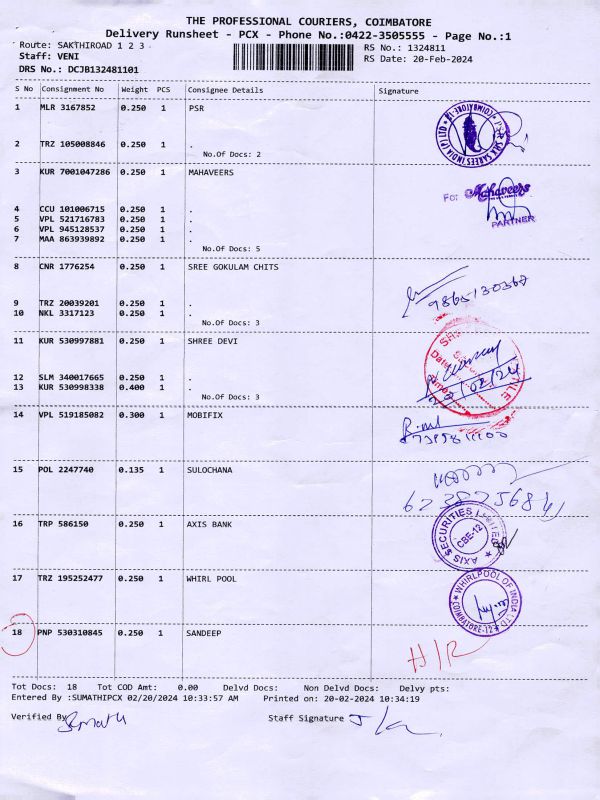 THE PROFESSIONAL COURIERS, COIMBATORE
Delivery Runsheet - PCX - Phone No.:0422-3505555 - Page No.:1
Route: SAKTHIROAD 1 2 3
RS No.: 1324811
Staff: VENI
RS Date: 20-Feb-2024
DRS No.: DCJB132481101
S No Consignment No Weight PCS Consignee Details Signature
1 MLR 3167852 0.250 1 PSR
2 TRZ 105008846 0.250 1 .
No.Of Docs: 2
3 KUR 7001047286 0.250 1 MAHAVEERS
For Mahaveers
PARTNER
4 CCU 101006715 0.250 1 .
5 VPL 521716783 0.250 1 .
6 VPL 945128537 0.250 1 .
7 MAA 863939892 0.250 1 .
No.Of Docs: 5
8 CNR 1776254 0.250 1 SREE GOKULAM CHITS
9865130367
9 TRZ 20039201 0.250 1 .
10 NKL 3317123 0.250 1 .
No.Of Docs: 3
11 KUR 530997881 0.250 1 SHREE DEVI
12 SLM 340017665 0.250 1 .
13 KUR 530998338 0.400 1 .
No.Of Docs: 3
14 VPL 519185082 0.300 1 MOBIFIX
15 POL 2247740 0.135 1 SULOCHANA
16 TRP 586150 0.250 1 AXIS BANK
AXIS SECURITIES LIMITED
CBE-12
17 TRZ 195252477 0.250 1 WHIRL POOL
WHIRLPOOL OF INDIA LTD
COIMBATORE-12
18 PNP 530310845 0.250 1 SANDEEP
H/R
Tot Docs: 18 Tot COD Amt: 0.00 Delvd Docs: Non Delvd Docs: Delvy pts:
Entered By :SUMATHIPCX 02/20/2024 10:33:57 AM Printed on: 20-02-2024 10:34:19
Verified By
Staff Signature